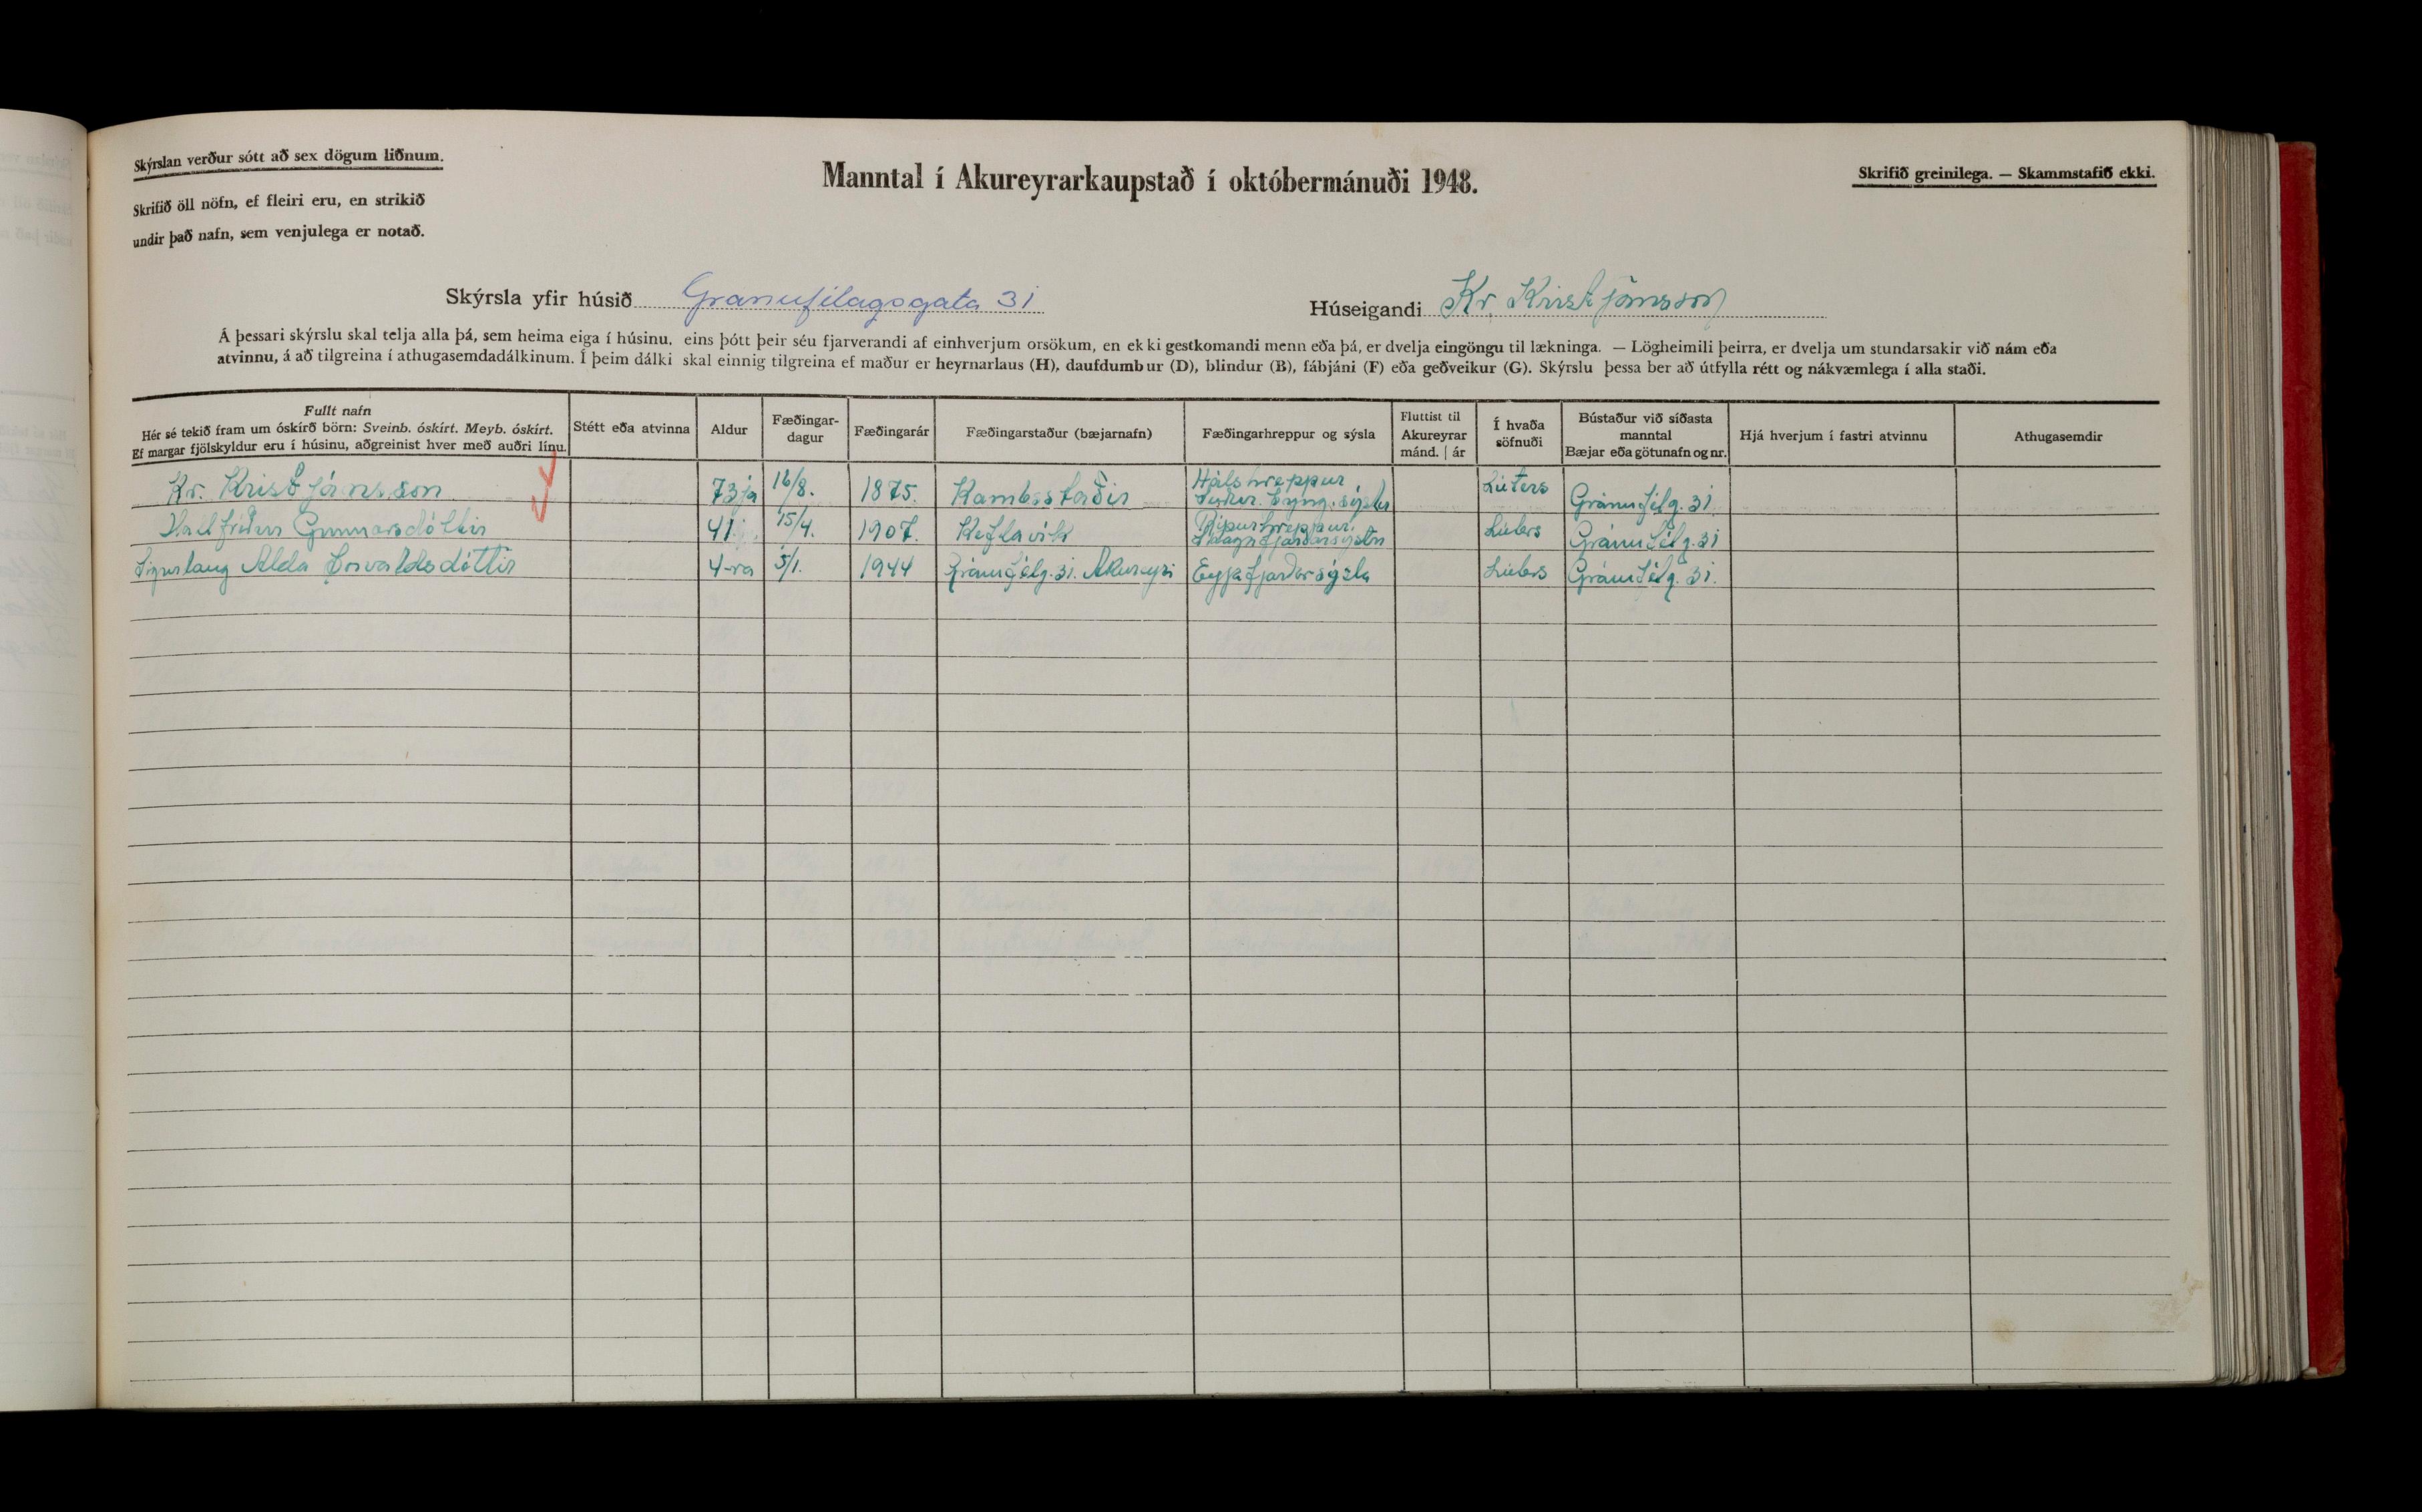 Skýrslan verður sótt að sex dögum liðnum.
Skrifið öll nöfn, ef fleiri eru, en strikið
undir það nafn, sem venjulega er notað.
Manntal í Akureyrarkaupstað í októbermánuði 1948.
Skrifið greinilega. — Skammstafið ekki.
Skýrsla yfir húsið Granufélagsgata 31
Húseigandi Kr. Kristjánsson
Á þessari skýrslu skal telja alla þá, sem heima eiga í húsinu, eins þótt þeir séu fjarverandi af einhverjum orsökum, en ekki gestkomandi menn eða þá, er dvelja eingöngu til lækninga. — Lögheimili þeirra, er dvelja um stundarsakir við nám eða
atvinnu, á að tilgreina í athugasemdadálkinum. Í þeim dálki skal einnig tilgreina ef maður er heyrnarlaus (H), daufdumbur (D), blindur (B), fábjáni (F) eða geðveikur (G). Skýrslu þessa ber að útfylla rétt og nákvæmlega í alla staði.
Fullt nafn
Hér sé tekið fram um óskírð börn: Sveinb. óskírt. Meyb. óskírt.
Ef margar fjölskyldur eru í húsinu, aðgreinist hver með auðri línu.
Stétt eða atvinna
Aldur
Fæðingar-
dagur
Fæðingarár
Fæðingarstaður (bæjarnafn)
Fæðingarhreppur og sýsla
Fluttist til
Akureyrar
mánd. | ár
Í hvaða
söfnuði
Bústaður við síðasta
manntal
Bæjar eða götunafn og nr.
Hjá hverjum í fastri atvinnu
Athugasemdir
Kr. Kristjánsson 73ja 16/8. 1875. Kambsstaðir Hálshreppur Lúters Gránufélg. 31.
Þing. sýslu
Hallfríður Gunnarsdóttir 41. 15/4. 1907. Keflavík Rípurhreppur. Lúters Gránufélg. 31
Skagafjarðarsýslu
Sigurlaug Alda Þorvaldsdóttir 4-ra 5/1. 1944 Gránufélg. 31. Akureyri Eyjafjarðarsýsla Lúters Gránufélg. 31.